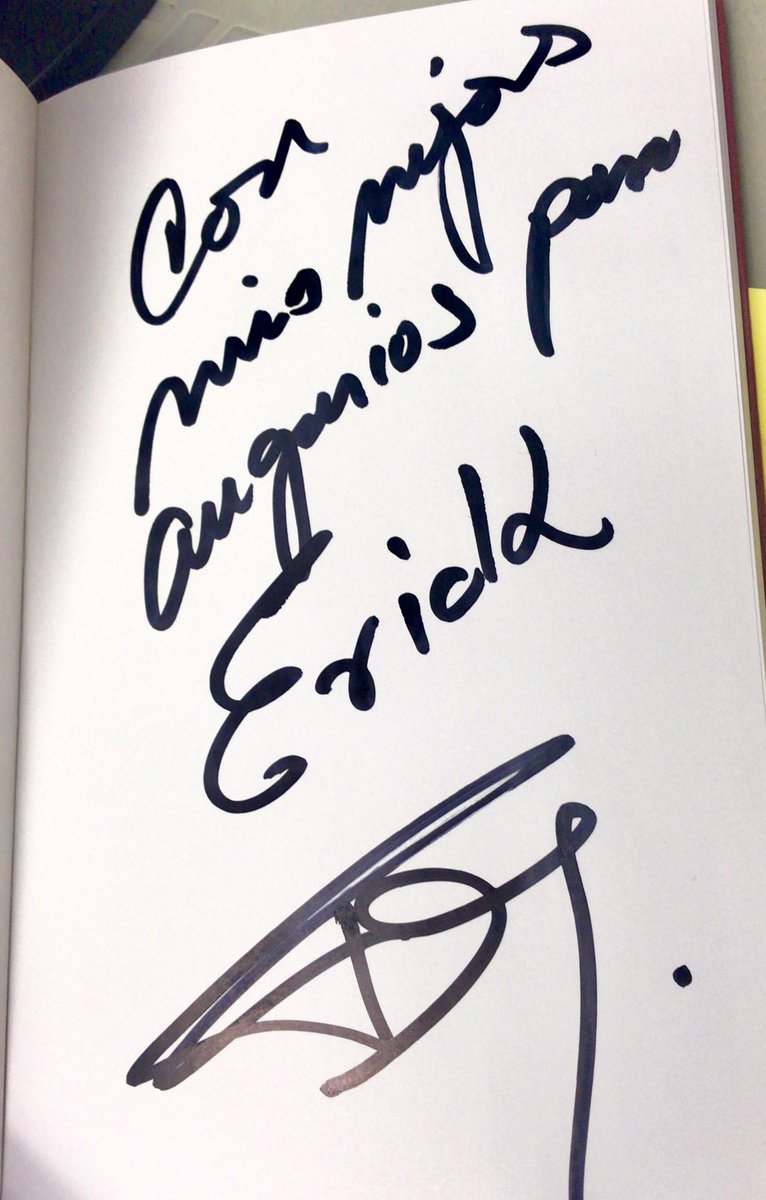 Con
mis mejores
augurios para
Erick